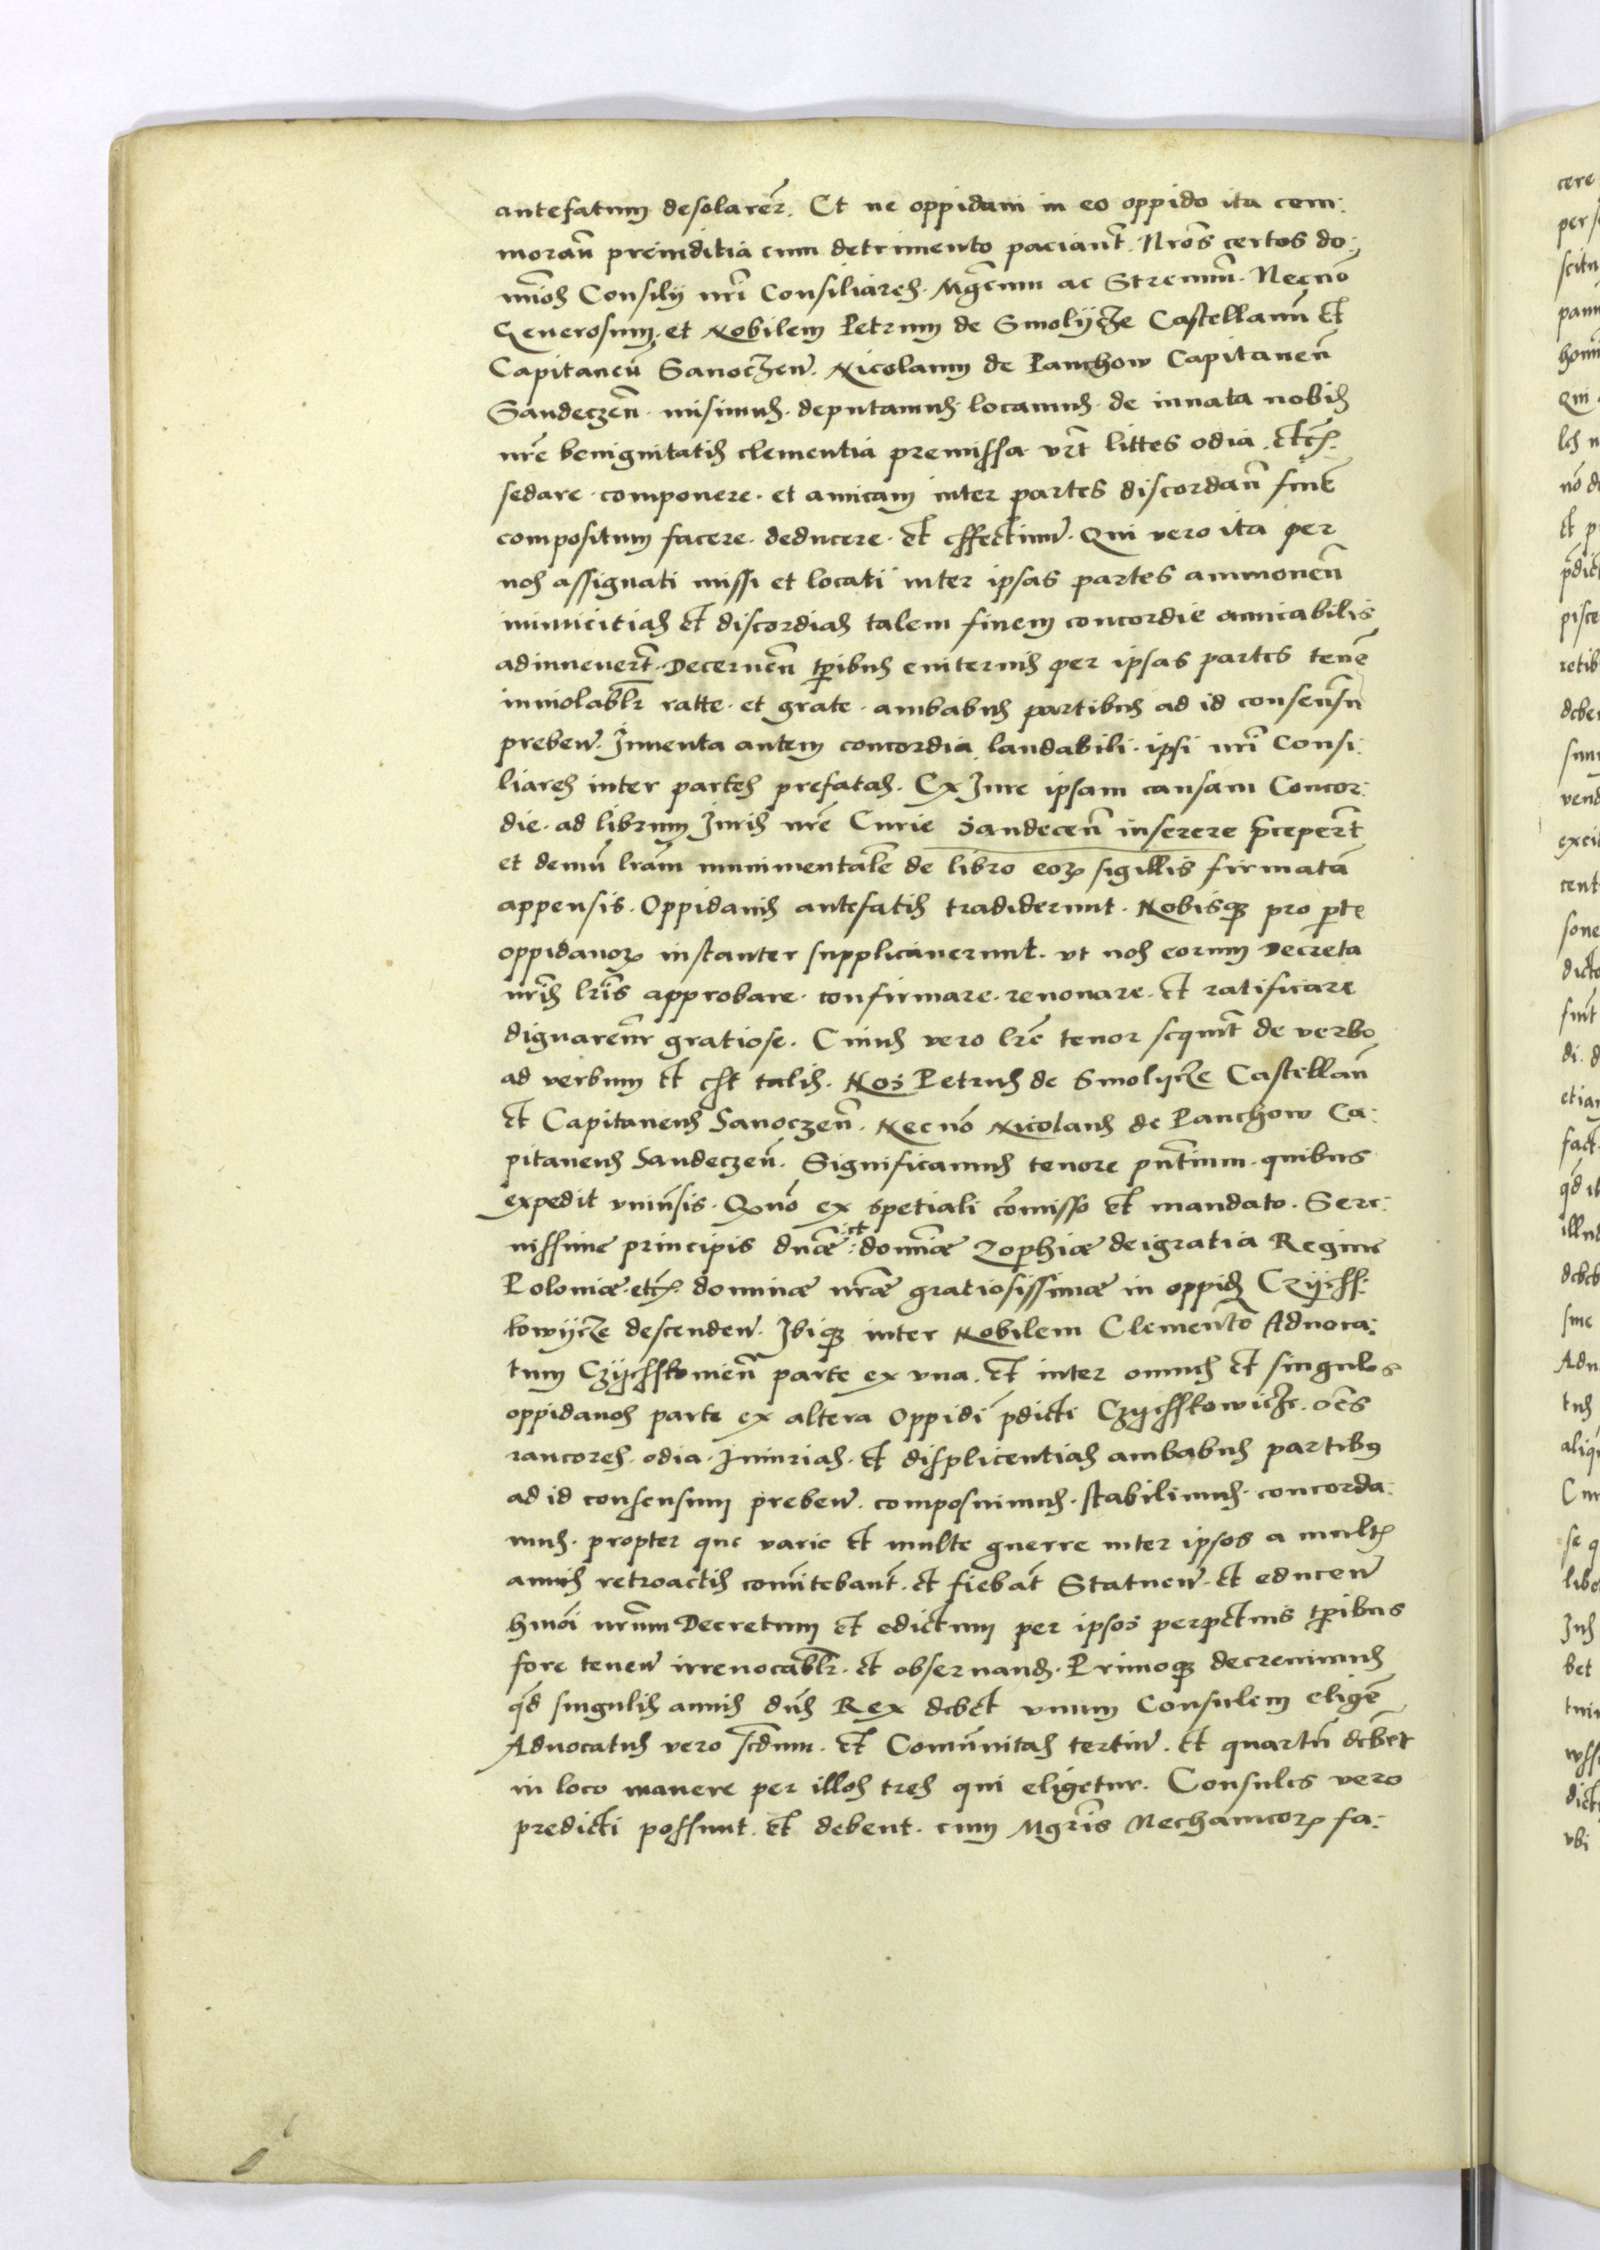 antefatum desolarēr. Et ne oppidani in eo oppido ita com:
morān preiuditia cum detrimento paciant̄. Nros̄ certos do:
mīos Consilij nrī Consiliares. Mgc̄um ac Strenuū. Necnō
Generosum. et Nobilem Petrum de Smolijcze Castellanū et
Capitaneū Sanoczeñ. Nicolaum de Panchow Capitaneū
Sandeczeñ. misimus. deputamus. locamus. de innata nobis
nrē benignitatis clementia premissa vt̄ littes odia. etc̄
sedare. componere. et amicam inter partes discordan̄ finē
compositum facere. deducere. et effectiuū. Qui vero ita per
nos assignati missi et locati inter ipsas partes ammonen̄
inimicitias et discordias talem finem concordie amicabilis
adinuenert̄. Decernen̄ tp̄ibus euiternis per ipsas partes tenē
inuiolabłr ratte. et grate. ambabus partibus ad id consensū
prebeñ. Inuenta autem concordia laudabili. ipsi nrī Consi:
liares inter partes prefatas. Ex Iure ipsam causam Concor:
die. ad librum Iuris nrē Curie Sandecen̄ inserere p̄cepert̄
et demū lrām munimentalē de libro eoꝝ sigillis firmatā
appensis. Oppidanis antefatis tradiderunt. Nobisqꝫ pro pt̄e
oppidanoꝝ instanter supplicauerunt. vt nos eorum Decreta
nrīs lrīs approbare. confirmare. renouare. et ratificare
dignaremr̄ gratiose. Cuius vero lrē tenor sequit̄ de verbo
ad verbum et est talis. Nos Petrus de Smolijcze Castellan̄
et Capitaneus Sanoczen̄. Necnō Nicolaus de Panchow Ca:
pitaneus Sandeczen̄. Significamus tenore pn̄tium. quibus
expedit vniūsis. Qūo ex spetiali cōmisso et mandato. Sere:
nissime principis dn̄æ :et: domīæ Zophiæ deigratia Regine
Poloniæ. etc̄. dominæ nrǣ gratiosissimæ in oppid̄ Czijess:
kowijcze descendeñ. Ibiqꝫ inter Nobilem Clementē Aduoca:
tum Czijesskouien̄ parte ex vna. et inter omnes et singulos
oppidanos parte ex altera Oppidi p̄dicti Czijesskowicze. oēs
rancores. odia. Iniurias. et displicentias ambabus partibus
ad id consensum prebeñ. composuimus. stabiliuimus. concorda:
mus. propter que varie et multe guerre inter ipsos a multꝭ
annis retroactis comītebant̄. et fiebāt Statueñ. et educeñ
hmōi nrūm Decretum et edictum per ipsos perpetuis tp̄ibus
fore teneñ irreuocabłr. et obseruand̄. Primoqꝫ decreuimus
qd̄ singulis annis dn̄s Rex debet vnum Consulem eligē
Aduocatus vero scd̄um. et Comūnitas tertiū. et quartū debēt
in loco manere per illos tres qui eligetur. Consules vero
predicti possunt. et debent. cum Mgrīs Mechanicoꝝ fa: